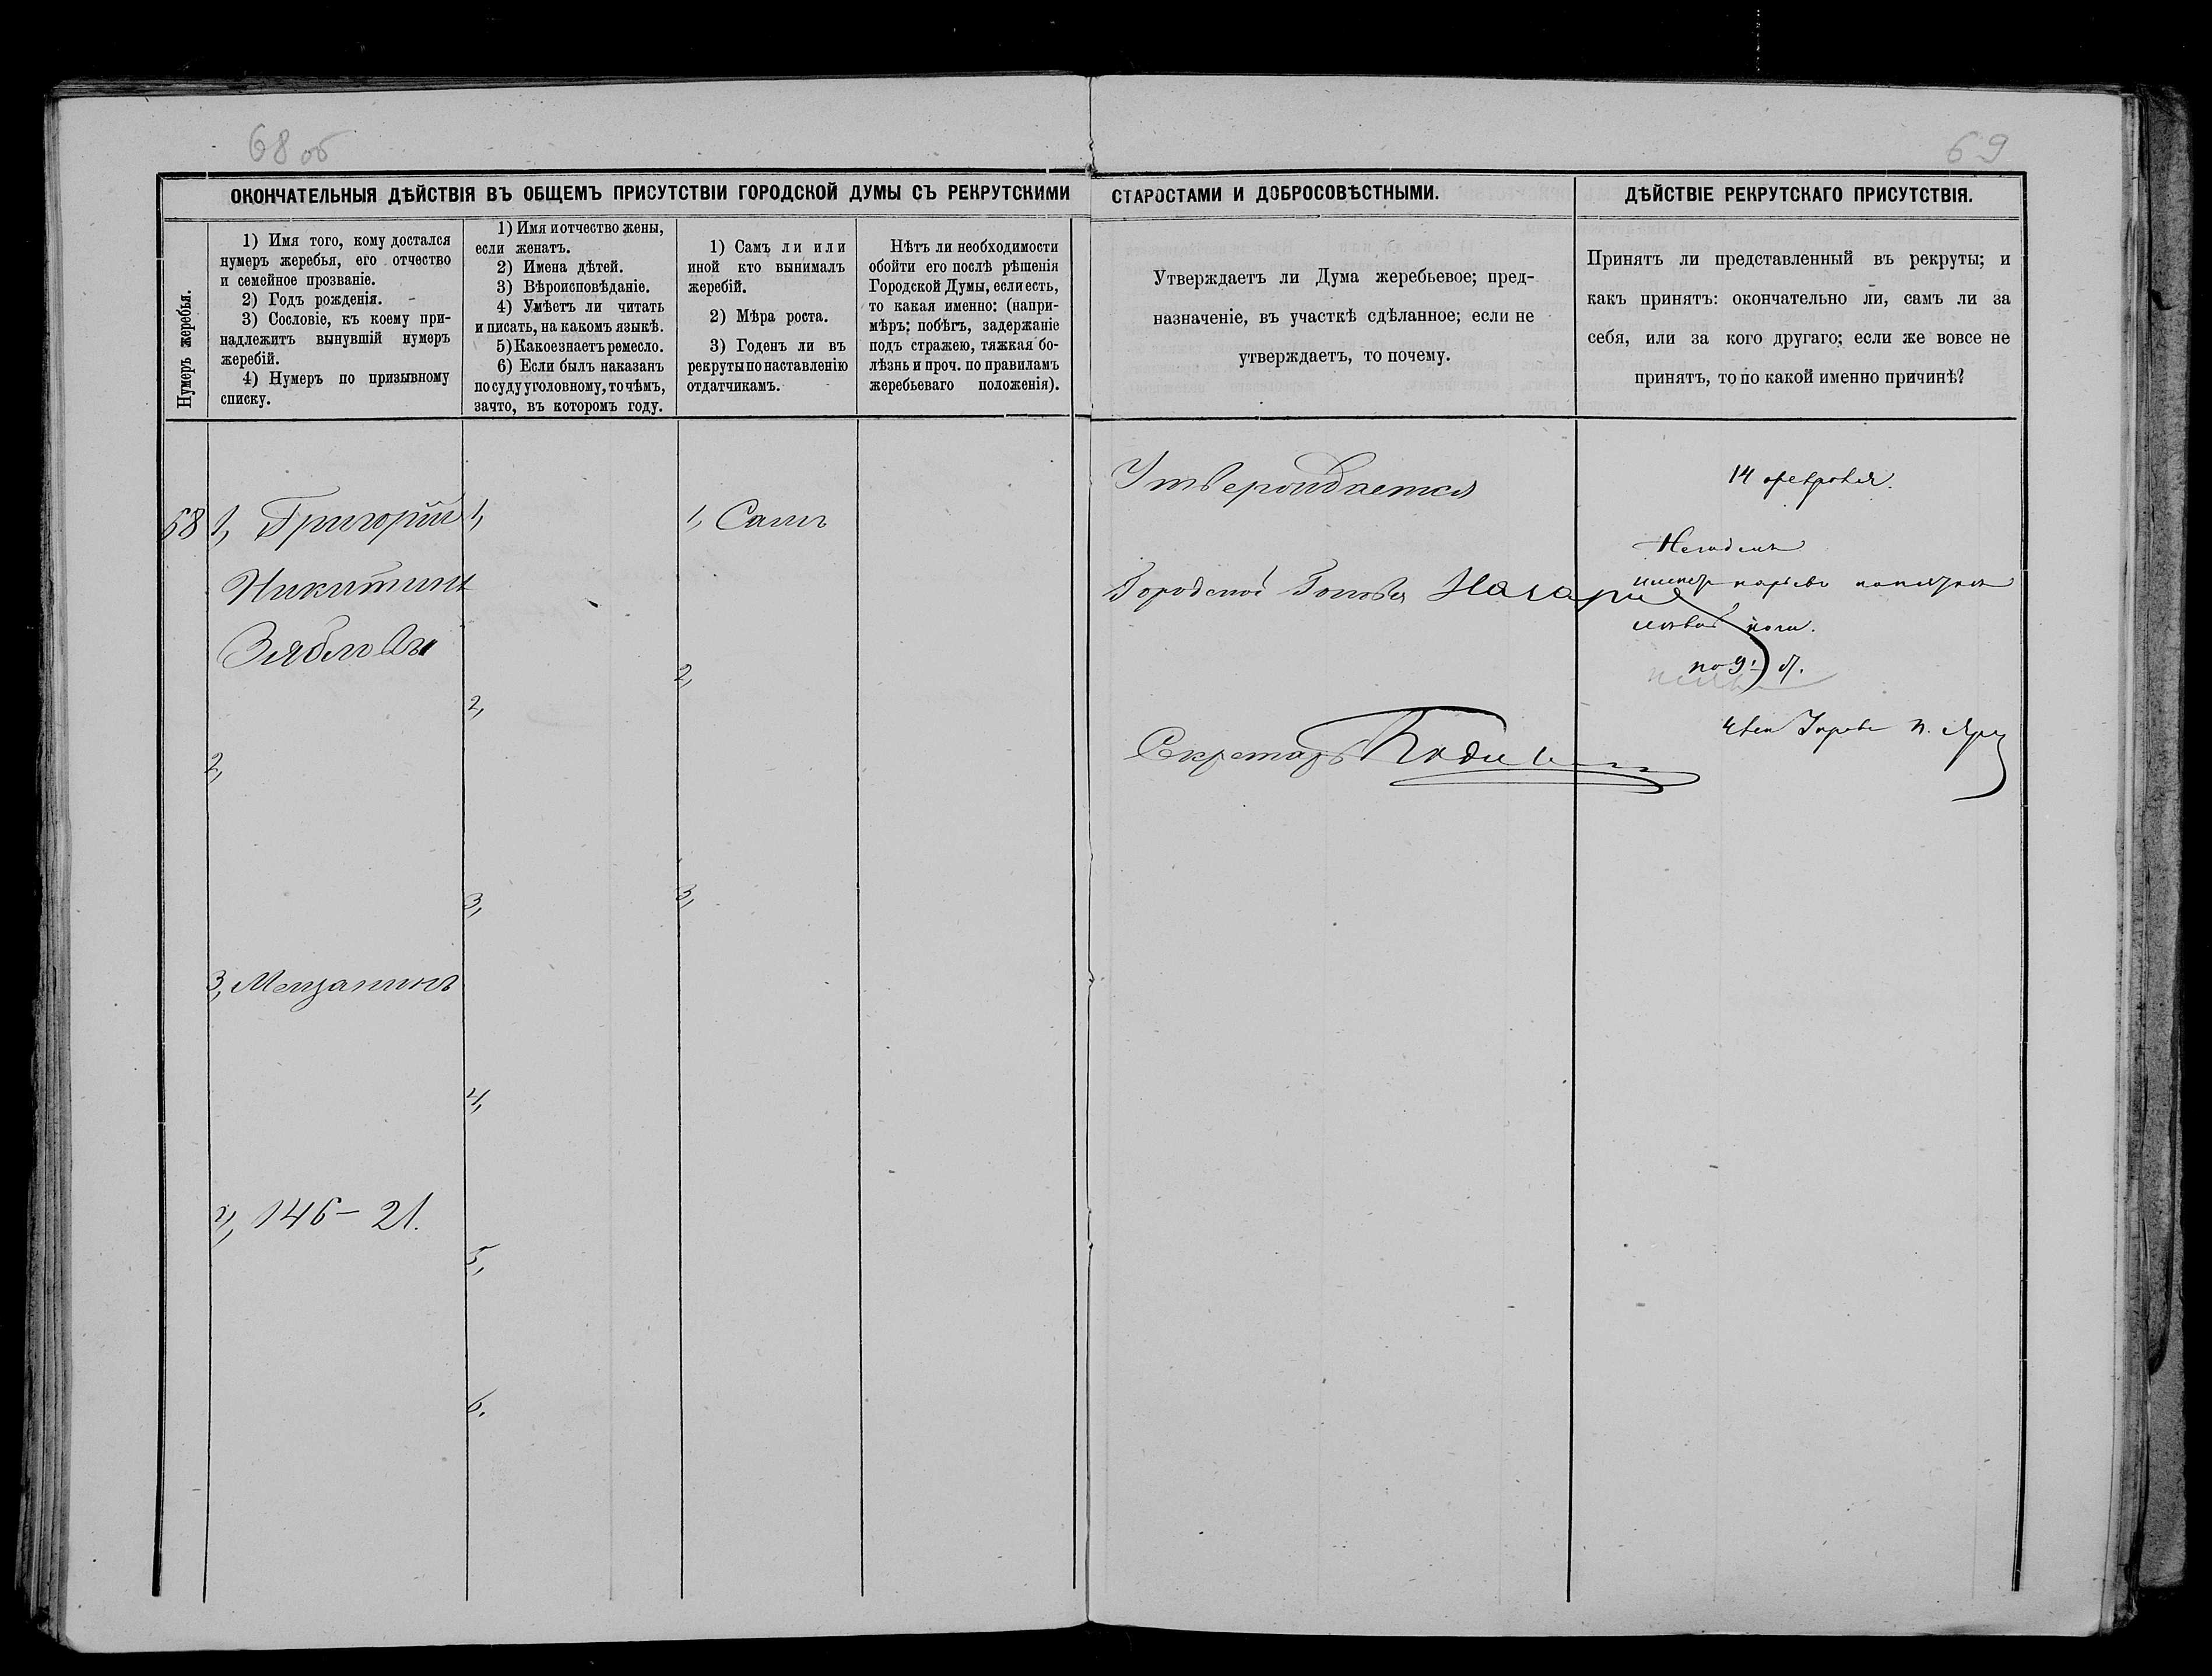 68 об
69
ОКОНЧАТЕЛЬНЫЯ ДѢЙСТВІЯ ВЪ ОБЩЕМЪ ПРИСУТСТВІИ ГОРОДСКОЙ ДУМЫ СЪ РЕКРУТСКИМИ
СТАРОСТАМИ И ДОБРОСОВѢСТНЫМИ.
ДѢЙСТВІЕ РЕКРУТСКАГО ПРИСУТСТВІЯ.
Нумеръ жеребья.
1) Имя того, кому достался
нумеръ жеребья, его отчество
и семейное прозваніе.
2) Годъ рожденія.
3) Сословіе, къ коему при-
надлежитъ вынувшій нумеръ
жеребій.
4) Нумеръ по призывному
списку.
1) Имя и отчество жены,
если женатъ.
2) Имена дѣтей.
3) Вѣроисповѣданіе.
4) Умѣетъ ли читать
и писать, на какомъ языкѣ.
5) Какое знаетъ ремесло.
6) Если былъ наказанъ
по суду уголовному, то чѣмъ,
за что, въ которомъ году.
1) Самъ ли или
иной кто вынималъ
жеребій.
2) Мѣра роста.
3) Годенъ ли въ
рекруты по наставленію
отдатчикамъ.
Нѣтъ ли необходимости
обойти его послѣ рѣшенія
Городской Думы, если есть,
то какая именно: (напри-
мѣръ: побѣгъ, задержаніе
подъ стражею, тяжкая бо-
лѣзнь и проч. по правиламъ
жеребьеваго положенія).
Утверждаетъ ли Дума жеребьевое; пред-
назначеніе, въ участкѣ сдѣланное; если не
утверждаетъ, то почему.
Принятъ ли представленный въ рекруты; и
какъ принятъ: окончательно ли, самъ ли за
себя, или за кого другаго; если же вовсе не
принятъ, то по какой именно причинѣ?
68
1, Григорій
Никитинъ
Зябловъ
2,
3, Мещанинъ
4, 146 – 21.
1,
2,
3,
4,
5,
6.
1, Самъ
2,
3,
Утверждается
Городской Голова
Секретарь
14 февраля.
Негоденъ
ноги.